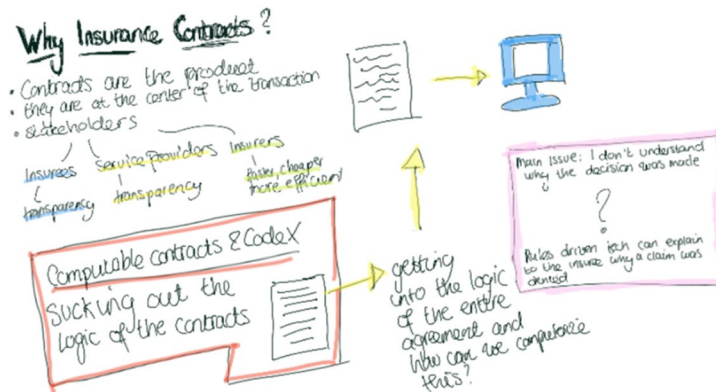 Why Insurance Contracts?
• Contracts are the product
• they are at the center of the transaction
• stakeholders
Insurees
Service providers
Insurers
transparency
transparency
faster, cheaper
more efficient
Computable contracts & CodeX
sucking out the
logic of the contracts
getting
into the logic
of the entire
agreement and
how can we computerize
this?
Main issue: I don't understand
why the decision was made
?
Rules driven tech can explain
to the insuree why a claim was
denied